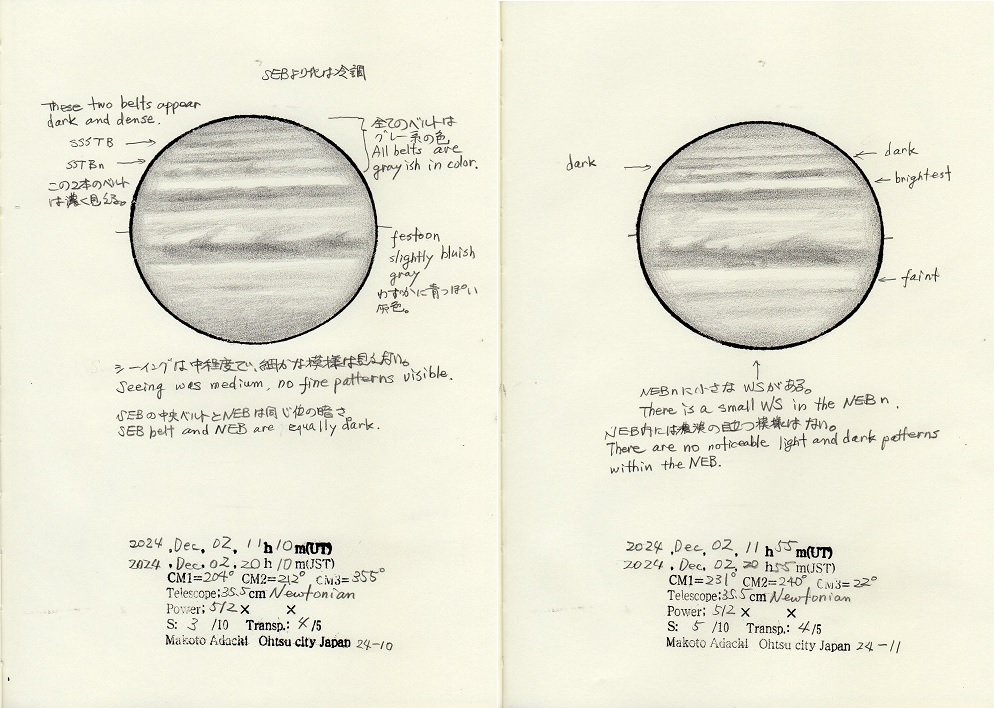 SEBより北は冷調
These two belts appear
dark and dense.
SSSTB
SSTBn
この2本のベルト
は濃く見える。
全てのベルトは
グレー系の色
All belts are
grayish in color.
festoon
slightly bluish
gray
わずかに青っぽい
灰色。
シーイングは中程度で、細かな模様は見えない。
Seeing was medium, no fine patterns visible.
SEBの中央ベルトとNEBは同じ位の暗さ。
SEB belt and NEB are equally dark.
2024 . Dec. 02. 11h 10m(UT)
2024 . Dec. 02. 20h 10m(JST)
CM1=204° CM2=212° CM3=355°
Telescope:35.5cm Newtonian
Power: 512× ×
S: 3 /10 Transp.: 4/5
Makoto Adachi Ohtsu city Japan 24-10
dark
dark
brightest
faint
NEBnに小さなWSがある。
There is a small WS in the NEBn.
NEB内には濃淡の目立つ模様はない。
There are no noticeable light and dark patterns
within the NEB.
2024 . Dec. 02. 11h 55m(UT)
2024 . Dec. 02. 20h 55m(JST)
CM1=231° CM2=240° CM3=22°
Telescope:35.5cm Newtonian
Power: 512× ×
S: 5 /10 Transp.: 4/5
Makoto Adachi Ohtsu city Japan 24-11